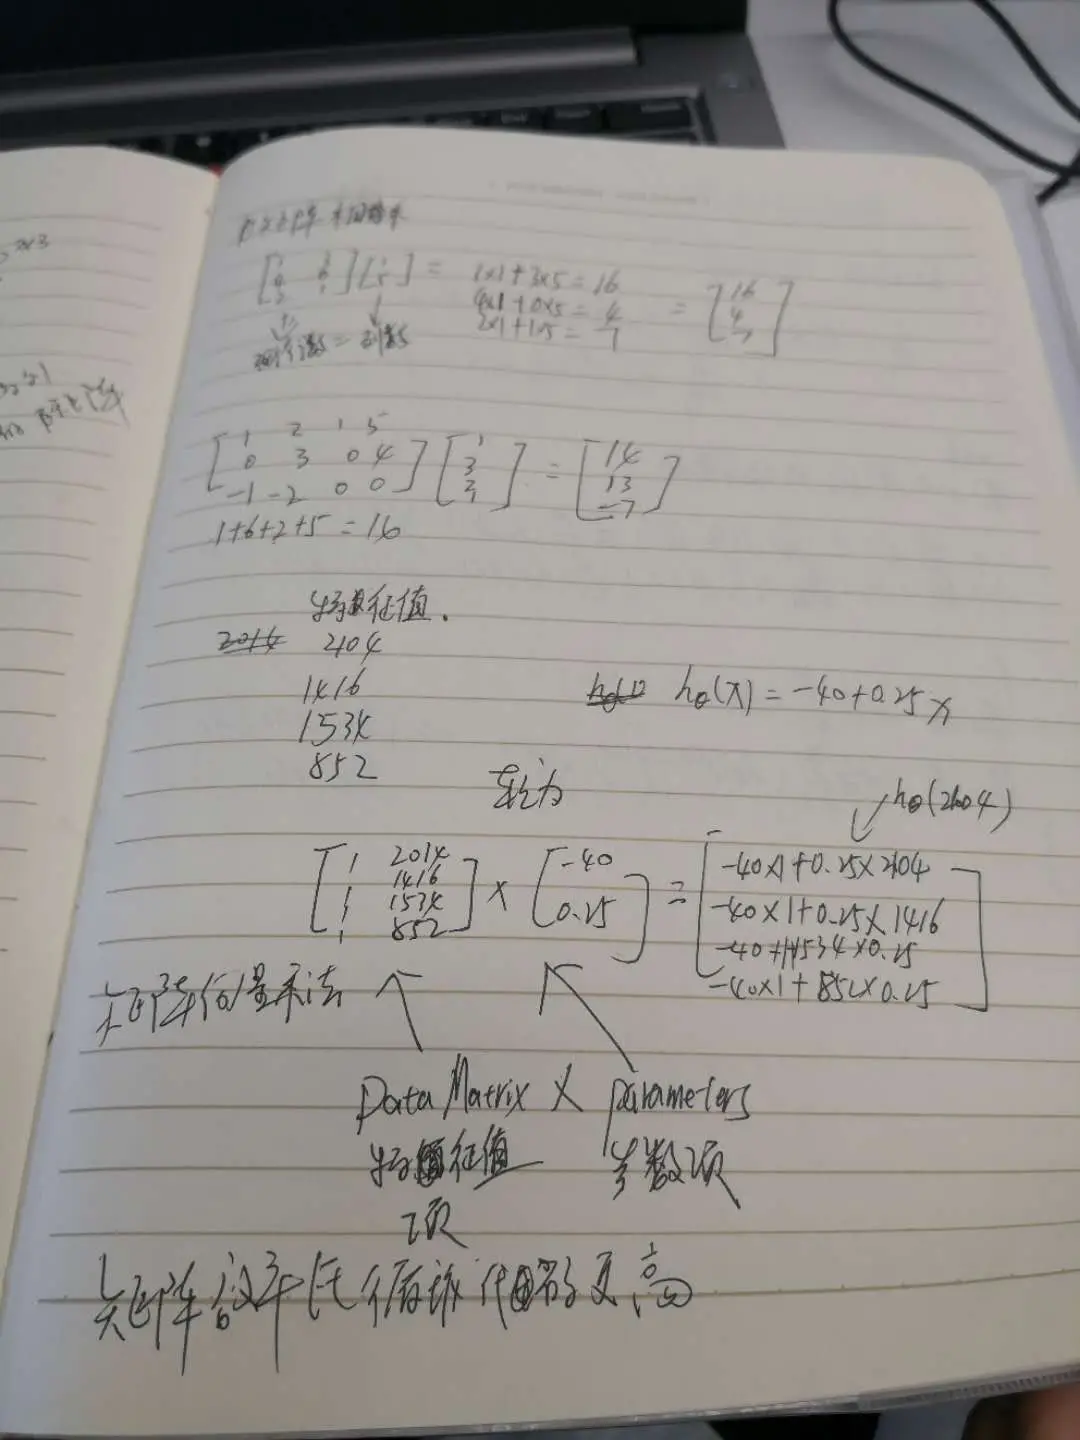 [1 3
4 0
2 1] [1
5] = 1x1+3x5=16
4x1+0x5=4
2x1+1x5=7
= [16
4
7]
行数=列数
[1 2 1 5
0 3 0 4
-1 -2 0 0] [1
3
2
1] = [14
13
-7]
1+6+2+5=16
特征值.
2014 2104
1416
1534
852
hθ(x)=-40+0.25x
转为
hθ(2104)
[1 2014
1 1416
1 1534
1 852] × [-40
0.25] = [-40x1+0.25x2104
-40x1+0.25x1416
-40+1534x0.25
-40x1+852x0.25]
矩阵向量乘法
Data Matrix × parameters
特征值 参数项
项
矩阵效率比循环代码更高